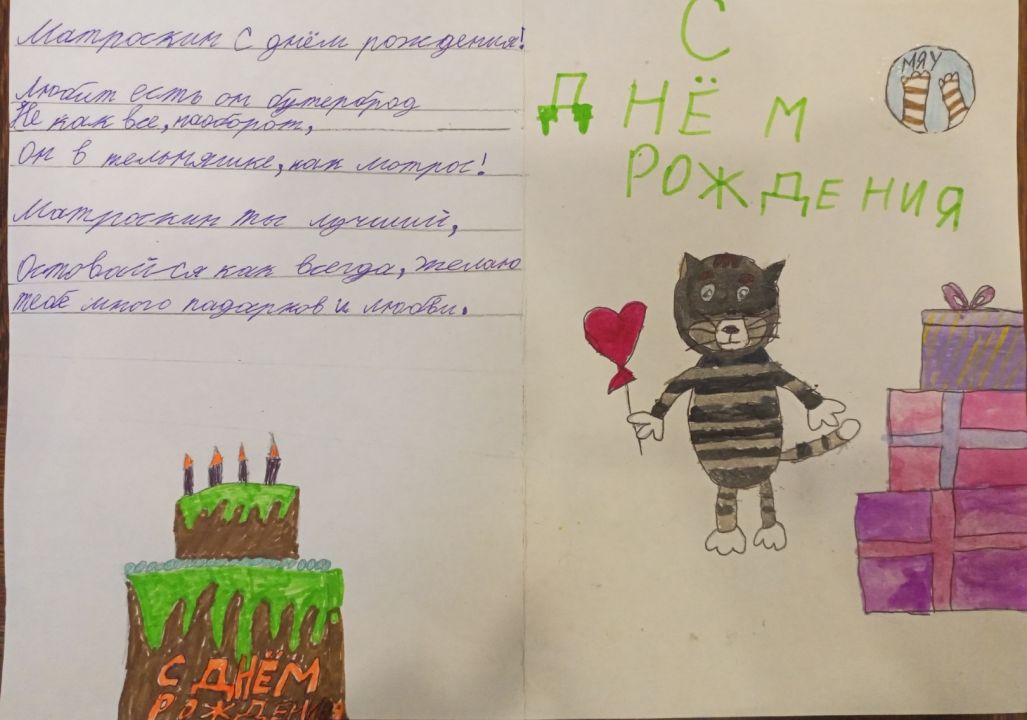 Матроскин с днём рождения!
Любит есть он бутерброд
Не как все, наоборот,
Он в тельняшке, как матрос!
Матроскин ты лучший,
Оставайся как всегда, желаю
тебе много падарков и любви.
С ДНЁМ
РОЖДЕНИ
С
ДНЁМ
РОЖДЕНИЯ
МЯУ